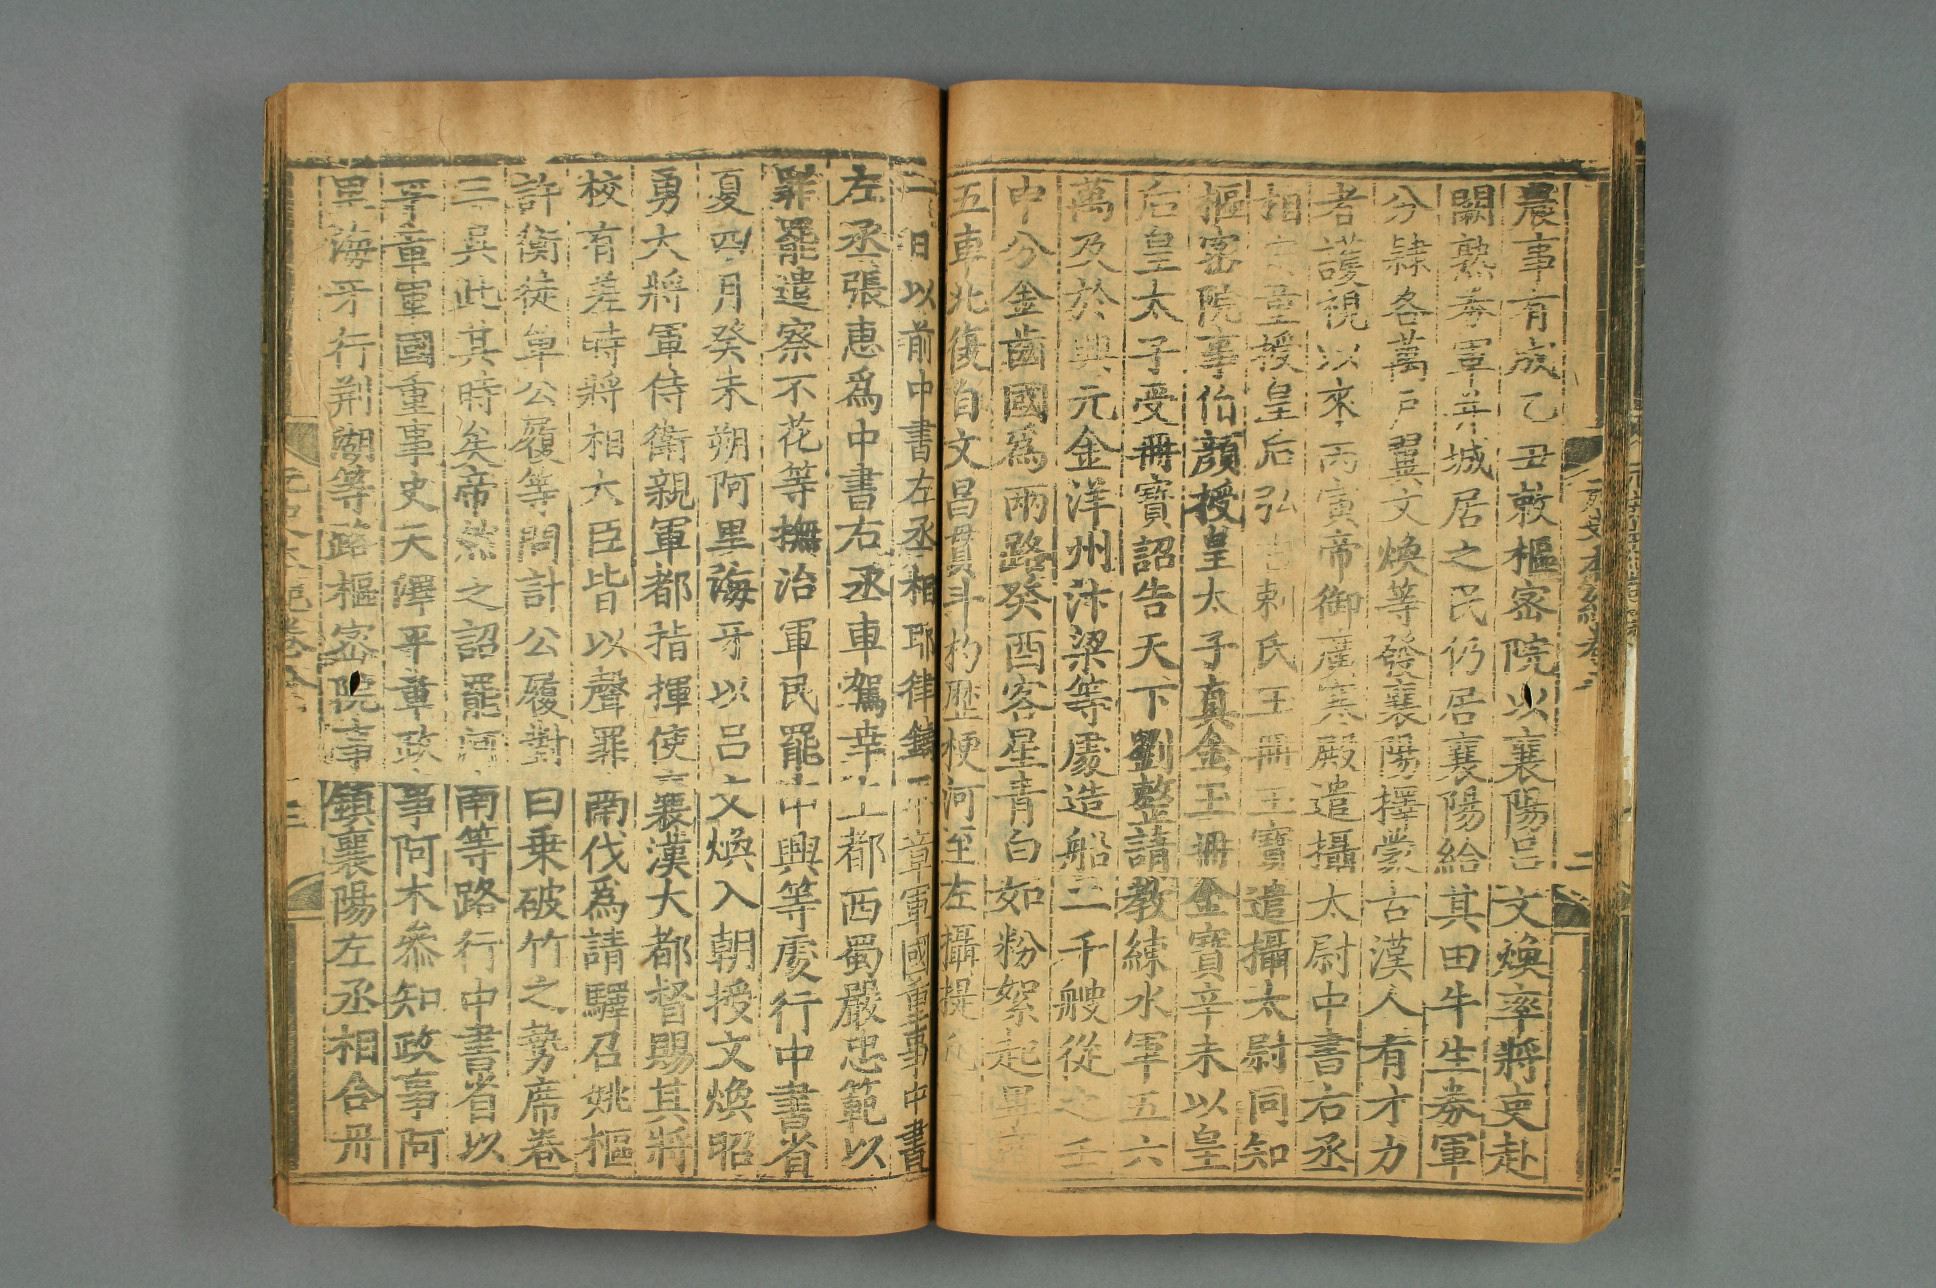 農事有成乙丑敕樞密院以襄陽呂文煥率將吏赴
闕熟券軍并城居之民仍居襄陽給其田牛生券軍
分隸各萬戶翼文煥等發襄陽擇蒙古漢人有才力
者護視以來丙寅帝御廣寒殿遣攝太尉中書右丞
相安童授皇后弘吉剌氏玉冊玉寶遣攝太尉同知
樞密院事伯顏授皇太子真金玉冊金寶辛未以皇
后皇太子受冊寶詔告天下劉整請教練水軍五六
萬及於興元金洋州汴梁等處造船二千艘從之壬
申分金齒國為兩路癸酉客星青白如粉絮起畢
五車北復自文昌貫斗杓歷梗河至左攝提凡
一日以前中書左丞相耶律鑄平章軍國重事中書
左丞張惠爲中書右丞車駕幸上都西蜀嚴忠範以
罪罷遣察不花等撫治軍民罷中興等處行中書省
夏四月癸未朔阿里海牙以呂文煥入朝授文煥昭
勇大將軍侍衛親軍都指揮使襄漢大都督賜其將
校有差時將相大臣皆以聲罪南伐爲請驛召姚樞
許衡徒單公履等問計公履對曰乗破竹之勢席卷
三吳此其時矣帝然之詔罷河南等路行中書省以
平章軍國重事史天澤平章政事阿朮叅知政事阿
里海牙行荆湖等路樞密院事鎮襄陽左丞相合丹
元史本紀卷八
三
元史本紀卷八
二